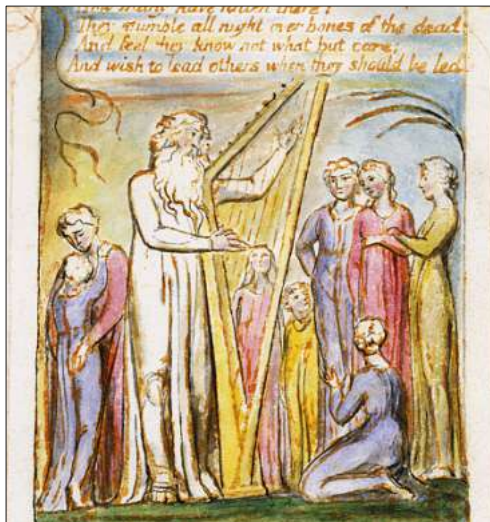 How many have fallen there!
They stumble all night over bones of the dead
And feel they know not what but care;
And wish to lead others when they should be led